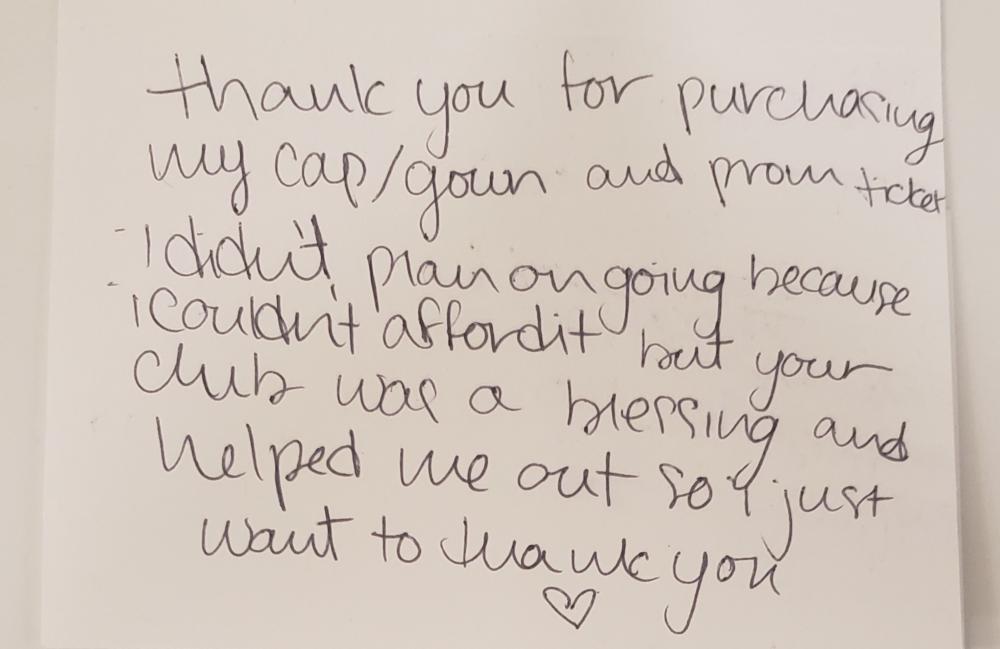 thank you for purchasing
my cap/gown and prom ticket
I didn't plan on going because
i couldn't afford it but your
club was a blessing and
helped me out so I just
want to thank you
♡